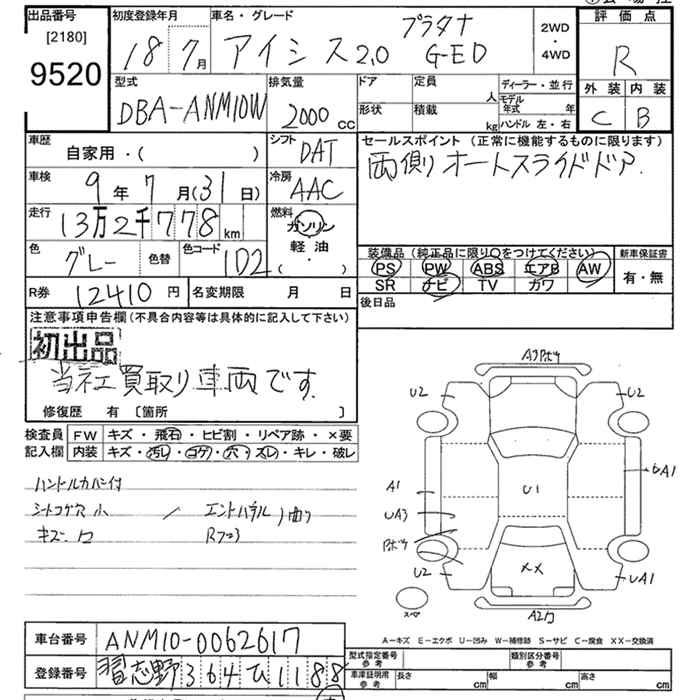 出品番号
[2180]
9520
初度登録年月
18 7月
車名・グレード
プラタナ
アイシス2.0 G-ED
2WD
・
4WD
評価点
R
外装 内装
C B
型式
DBA-ANM10W
排気量
2000 cc
ドア
形状
定員 人
積載 kg
ディーラー・並行
モデル年式 年
ハンドル 左・右
車歴
自家用・( )
シフト
DAT
車検
9年 7月(31日)
冷房
AAC
走行
13万2千778km
燃料
ガソリン
軽・油
( ・ )
色
グレー
色替
色コード
1D2
セールスポイント (正常に機能するものに限ります)
両側オートスライドドア.
装備品(純正品に限り○をつけてください)
PS PW ABS エアB AW
SR ナビ TV カワ
新車保証書
有・無
R券 12410円
名変期限 月 日
後日品
注意事項申告欄(不具合内容等は具体的に記入して下さい)
初出品
当社買取り車両です.
修復歴 有 〔箇所 〕
検査員記入欄
FW キズ・飛石・ヒビ割・リペア跡・×要
内装 キズ・汚レ・コゲ・穴・スレ・キレ・破レ
ハンドルカバー付
シートコゲ穴小 /
キズ
A3
U2
U2
A1
UA3
U2
U1
A1
UA1
XX
A2
スペア
A-キズ E-エクボ U-凹み W-補修跡 S-サビ C-腐食 XX-交換済
車台番号 ANM10-0062617
登録番号 習志野364ひ1188
型式指定番号 参考
類別区分番号 参考
車庫証明用 参考 長さ cm 幅 cm 高さ cm